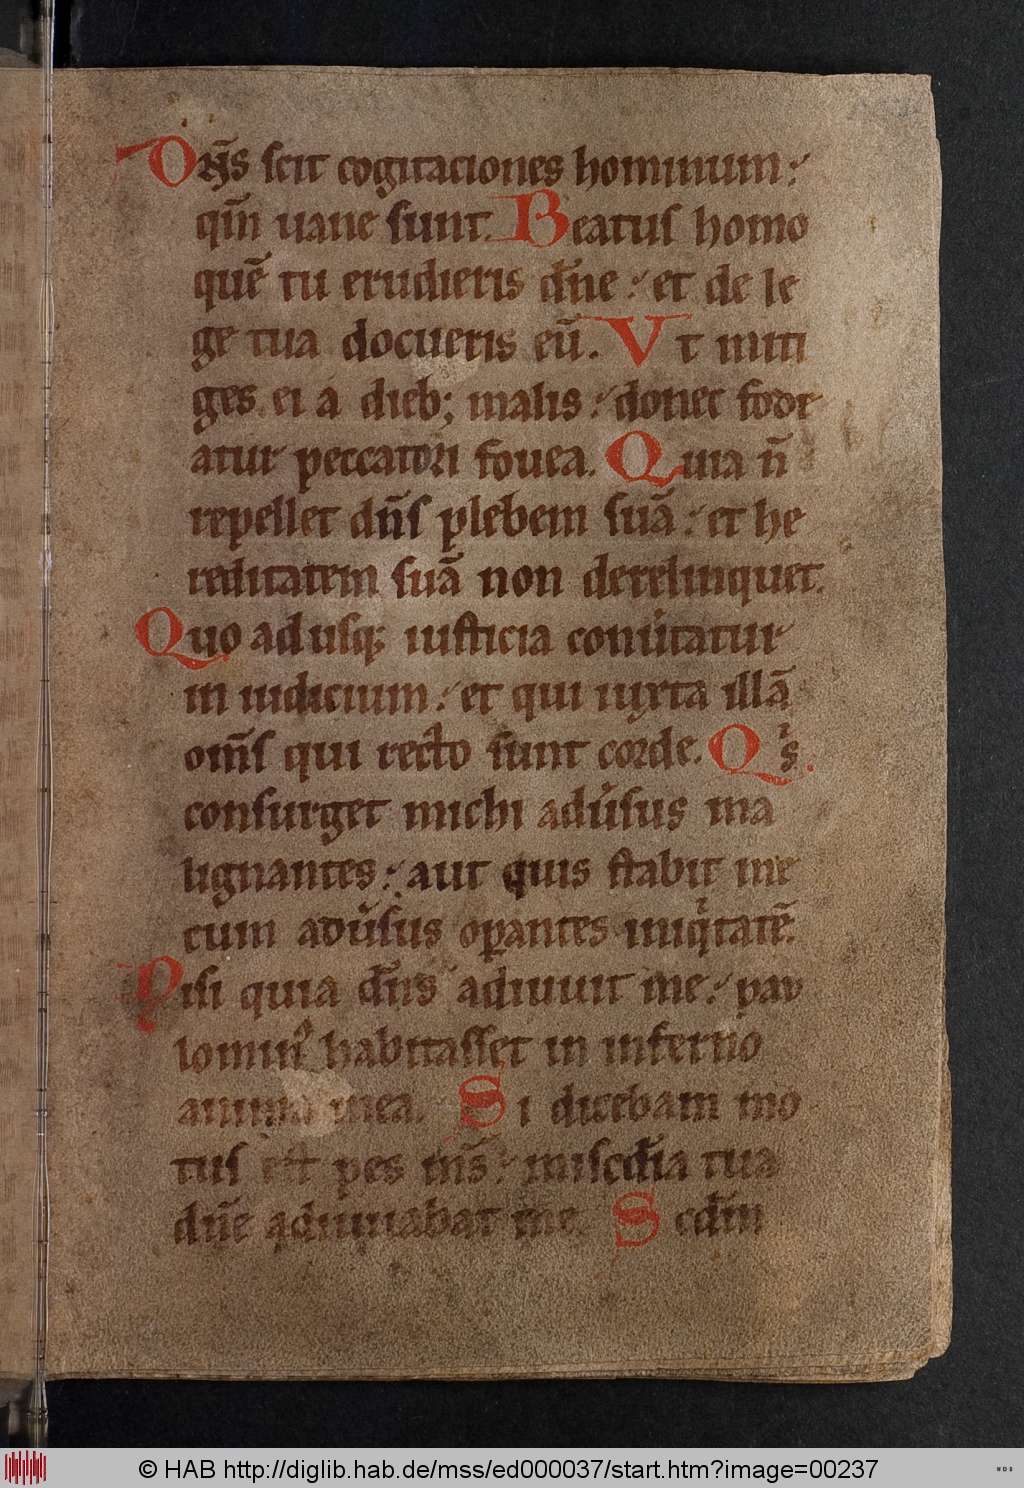 Dñs scit cogitaciones hominum:
qm̄ uane sunt. Beatus homo
quē tu erudieris dn̄e: et de le
ge tua docueris eū. Vt miti
ges ei a dieb; malis: donec fodi
atur peccatori fouea. Quia n̄
repellet dn̄s plebem suā: et he
reditatem suā non derelinquet.
Quo adusq; iusticia conu̓tatur
in iudicium: et qui iuxta illā
om̄s qui recto sunt corde. Qͥs
consurget michi adu̓sus ma
lignantes: aut quis stabit me
cum adu̓sus oꝑantes iniqͥtatē.
Nisi quia dn̄s adiuuit me: pau
lominꝰ habitasset in inferno
anima mea. Si dicebam mo
tus est pes m̄s: misc̄dia tua
dn̄e adiuuabat me. Scdm̄
© HAB http://diglib.hab.de/mss/ed000037/start.htm?image=00237